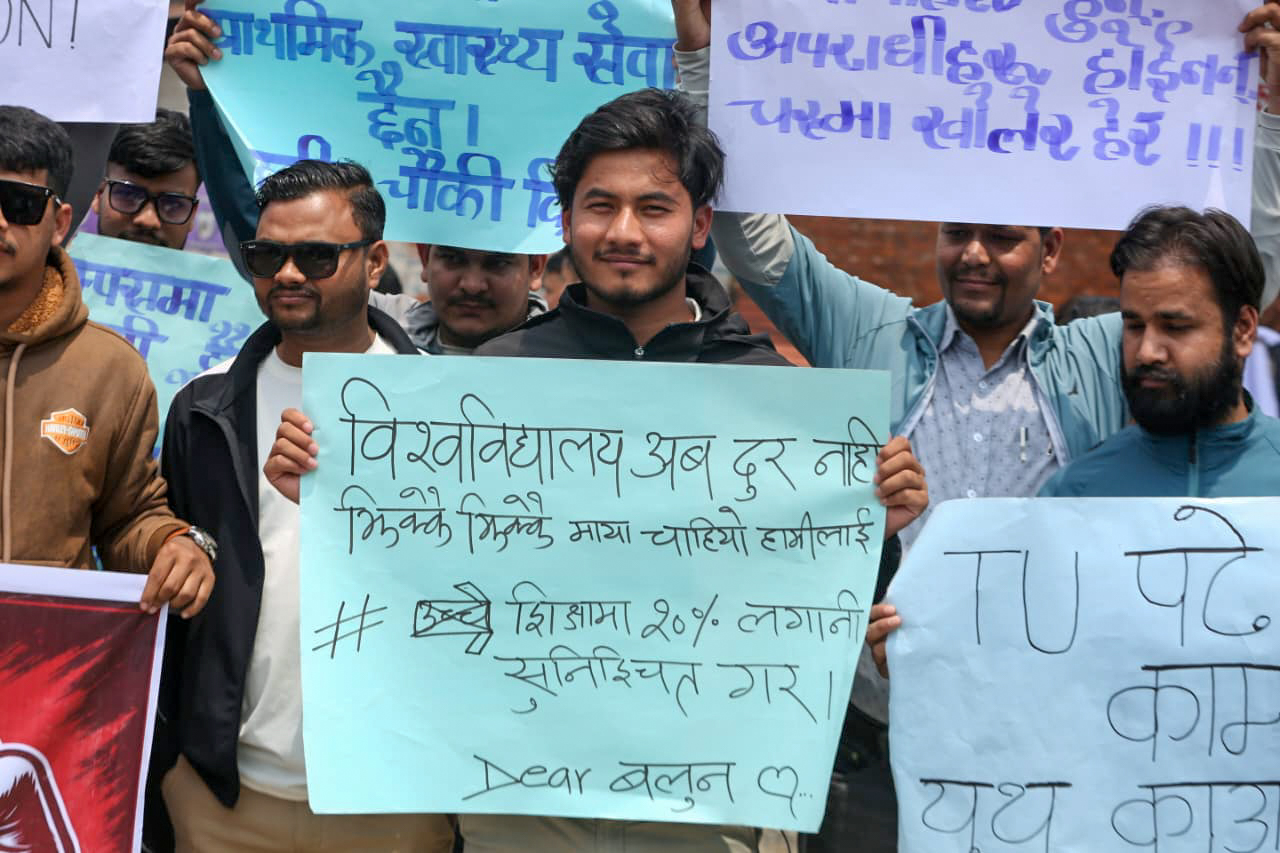 ON!
प्राथमिक स्वास्थ्य सेवा
छैन।
चौकी
अपराधीहरू हाईनन्
चस्मा खोलेर हेर !!!
विश्वविद्यालय अब दुर नाही
झिक्कै झिक्कै माया चाहियो हामीलाई
# शिक्षामा २०% लगानी
सुनिश्चित गर।
Dear बलुन ♡...
TU पढे
काम
यूथ काउ